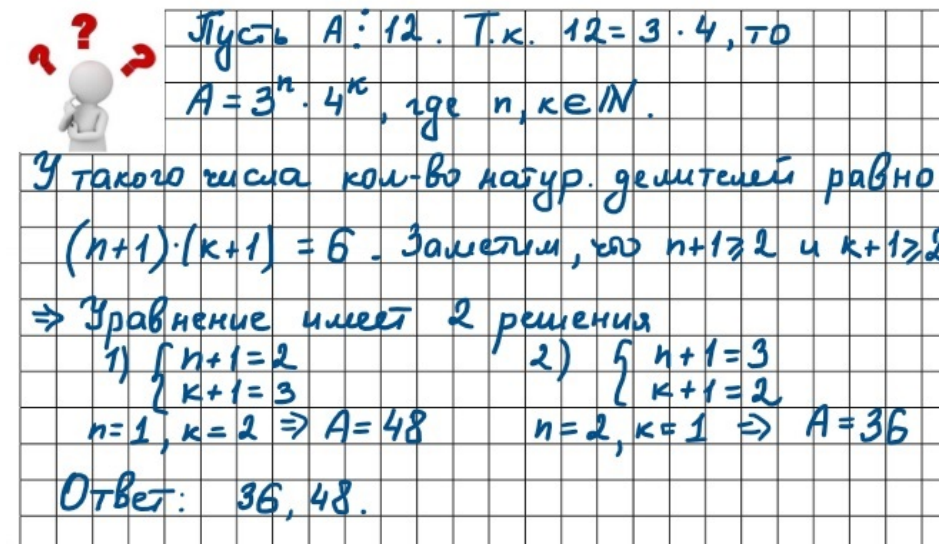 ? ? ?
Пусть A ⋮ 12. Т.к. 12 = 3 · 4, то
A = 3ⁿ · 4ᵏ, где n, k ∈ ℕ.
У такого числа кол-во натур. делителей равно
(n+1)·(k+1) = 6. Заметим, что n+1⩾2 и k+1⩾2
⇒ Уравнение имеет 2 решения
1) { n+1=2 2) { n+1=3
k+1=3 k+1=2
n=1, k=2 ⇒ A=48 n=2, k=1 ⇒ A=36
Ответ: 36, 48.